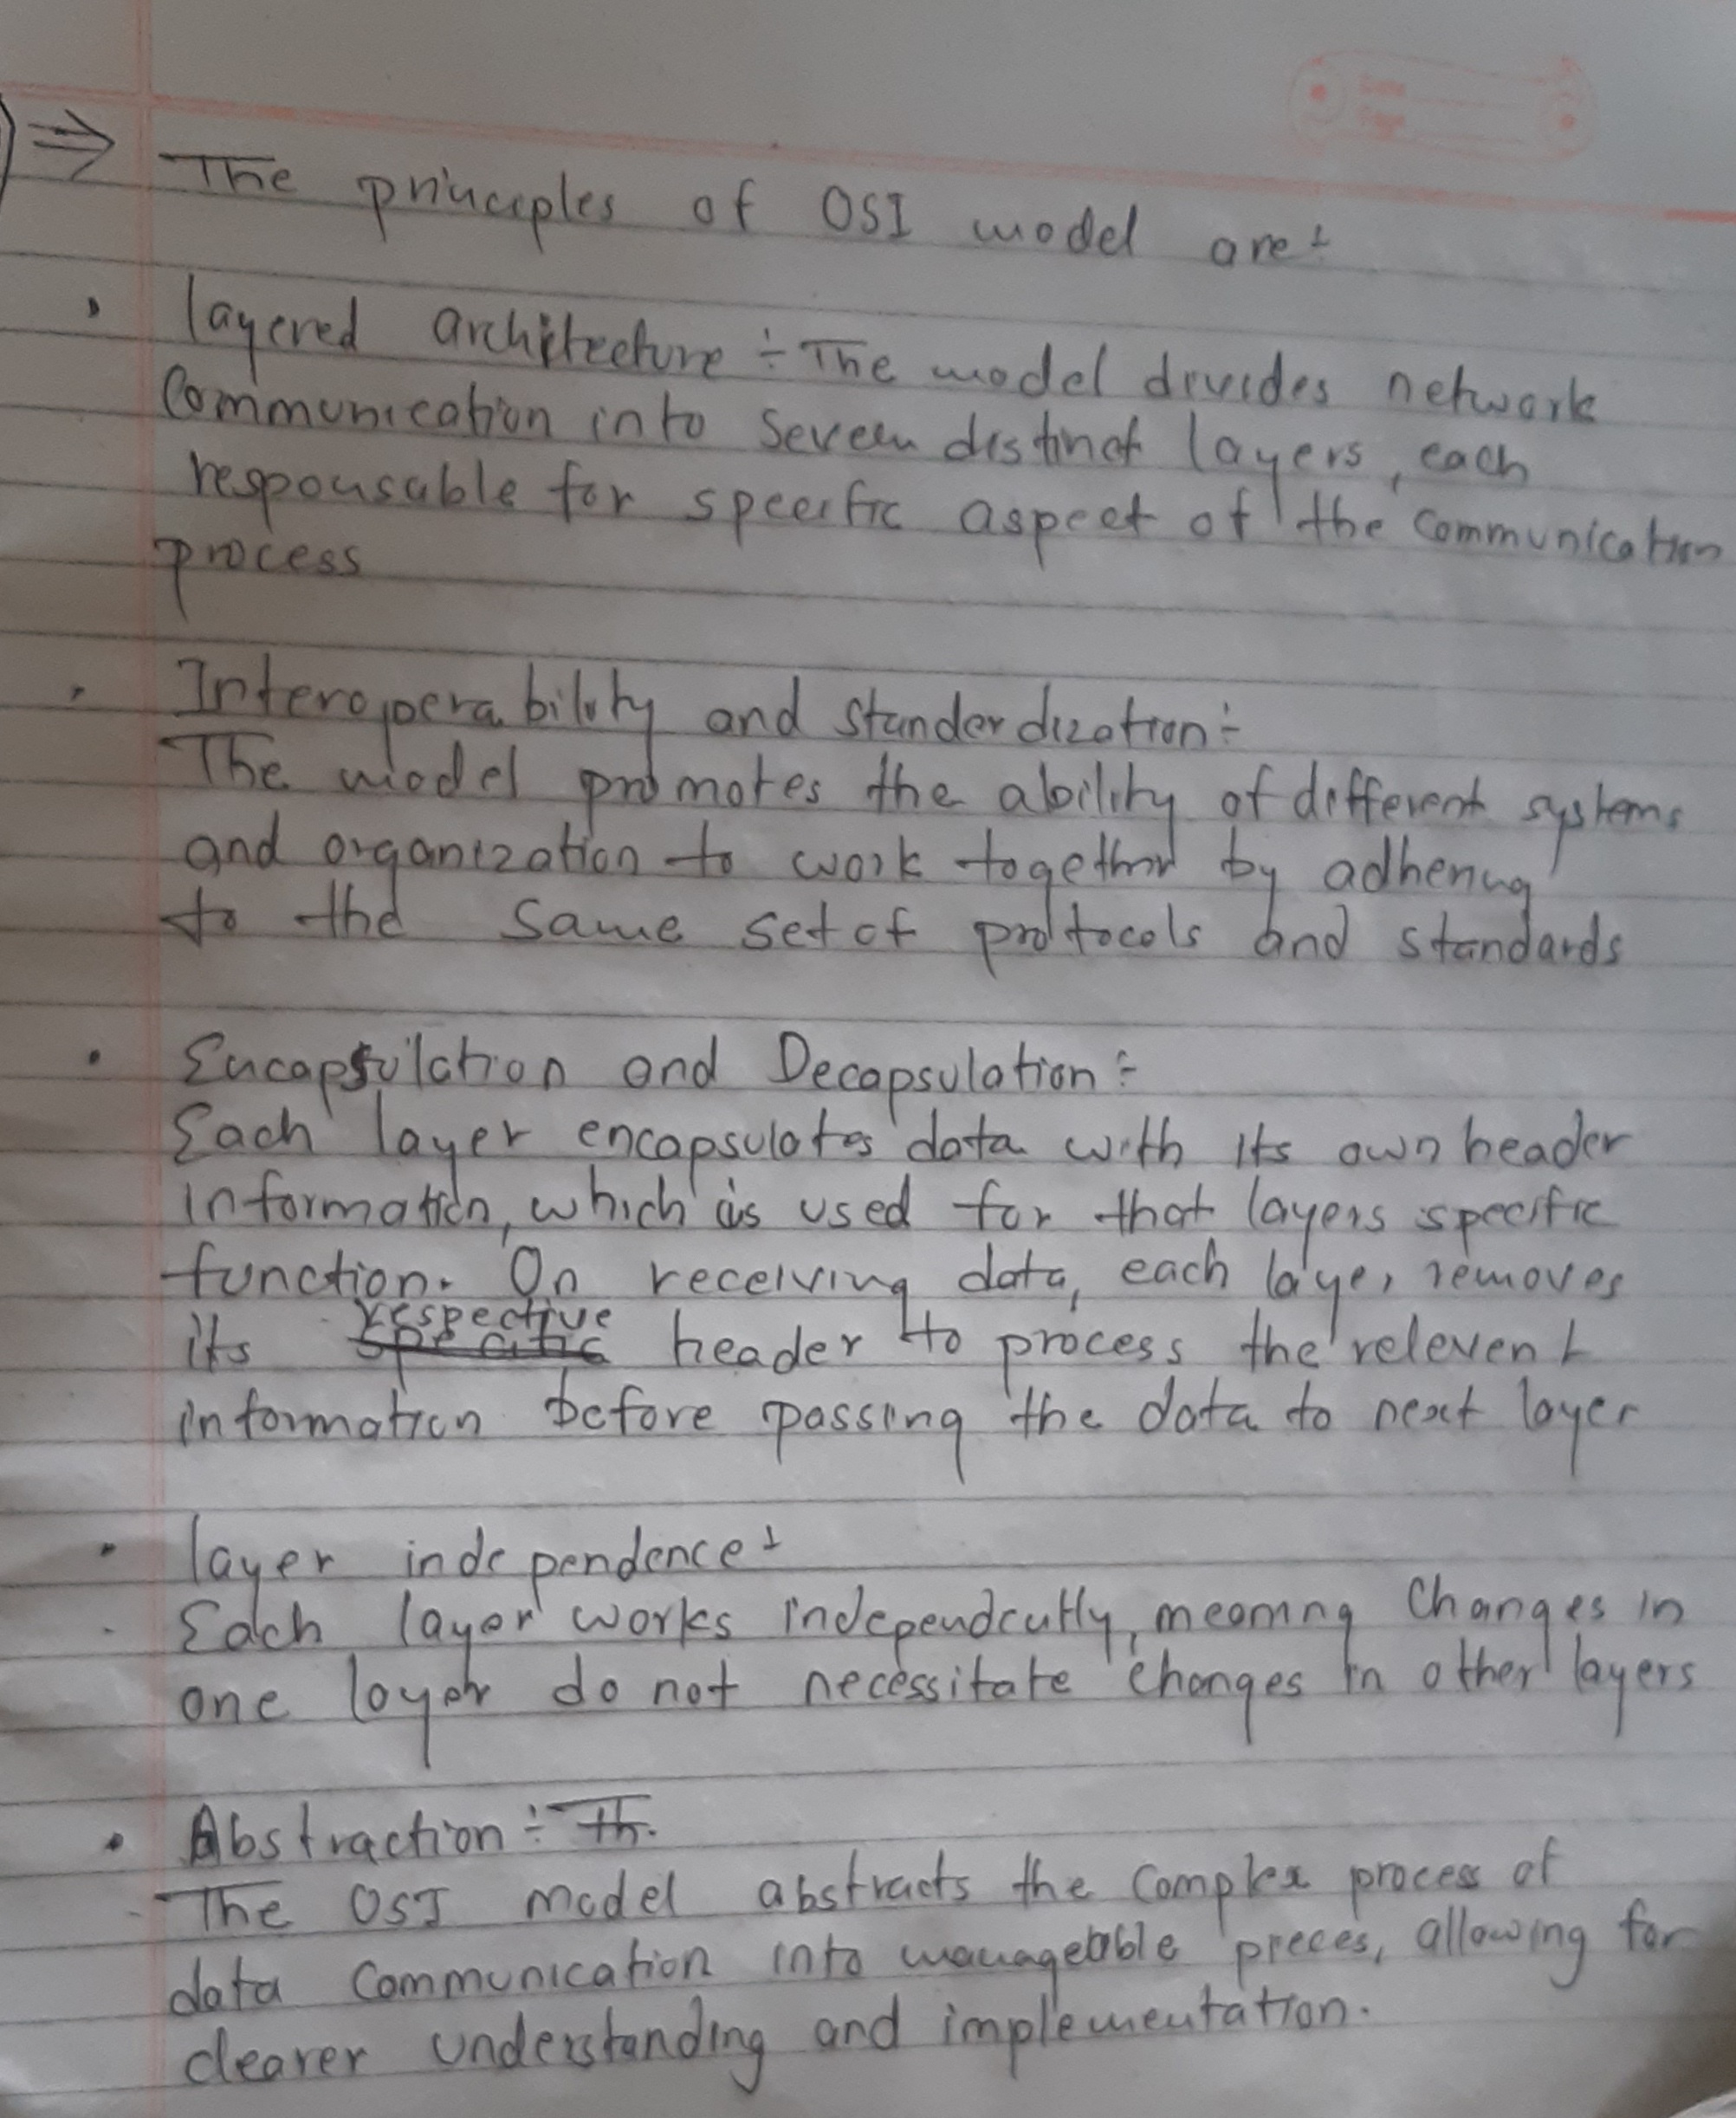 ⇒ The principles of OSI model are:-
• layered architecture :- The model divides network
Communication into seven distinct layers, each
responsable for specific aspect of the communication
process
• Interoperability and standerdization :-
The model promotes the ability of different systems
and organization to work together by adhering
to the same set of protocols and standards
• Encapsulation and Decapsulation :-
Each layer encapsulates data with its own header
information, which is used for that layers specific
function. On receiving data, each layer removes
its respective header to process the relevent
information before passing the data to next layer
• layer independence :-
Each layer works independently, meaning changes in
one layer do not necessitate changes in other layers
• Abstraction :- Th.
The OSI model abstracts the complex process of
data communication into manageable pieces, allowing for
clearer understanding and implementation.